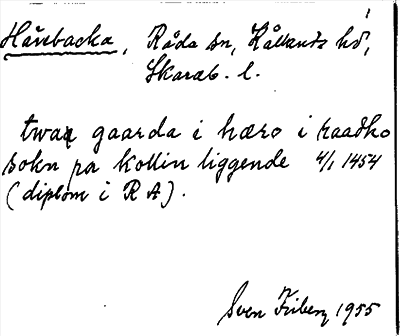 Håvebacka, Råda sn, Kållands hd,
Skarab. l.
twaa gaarda i hæro i raadko
sokn pa kollin liggende 4/1 1454
(diplom i RA).
Sven Friberg 1955